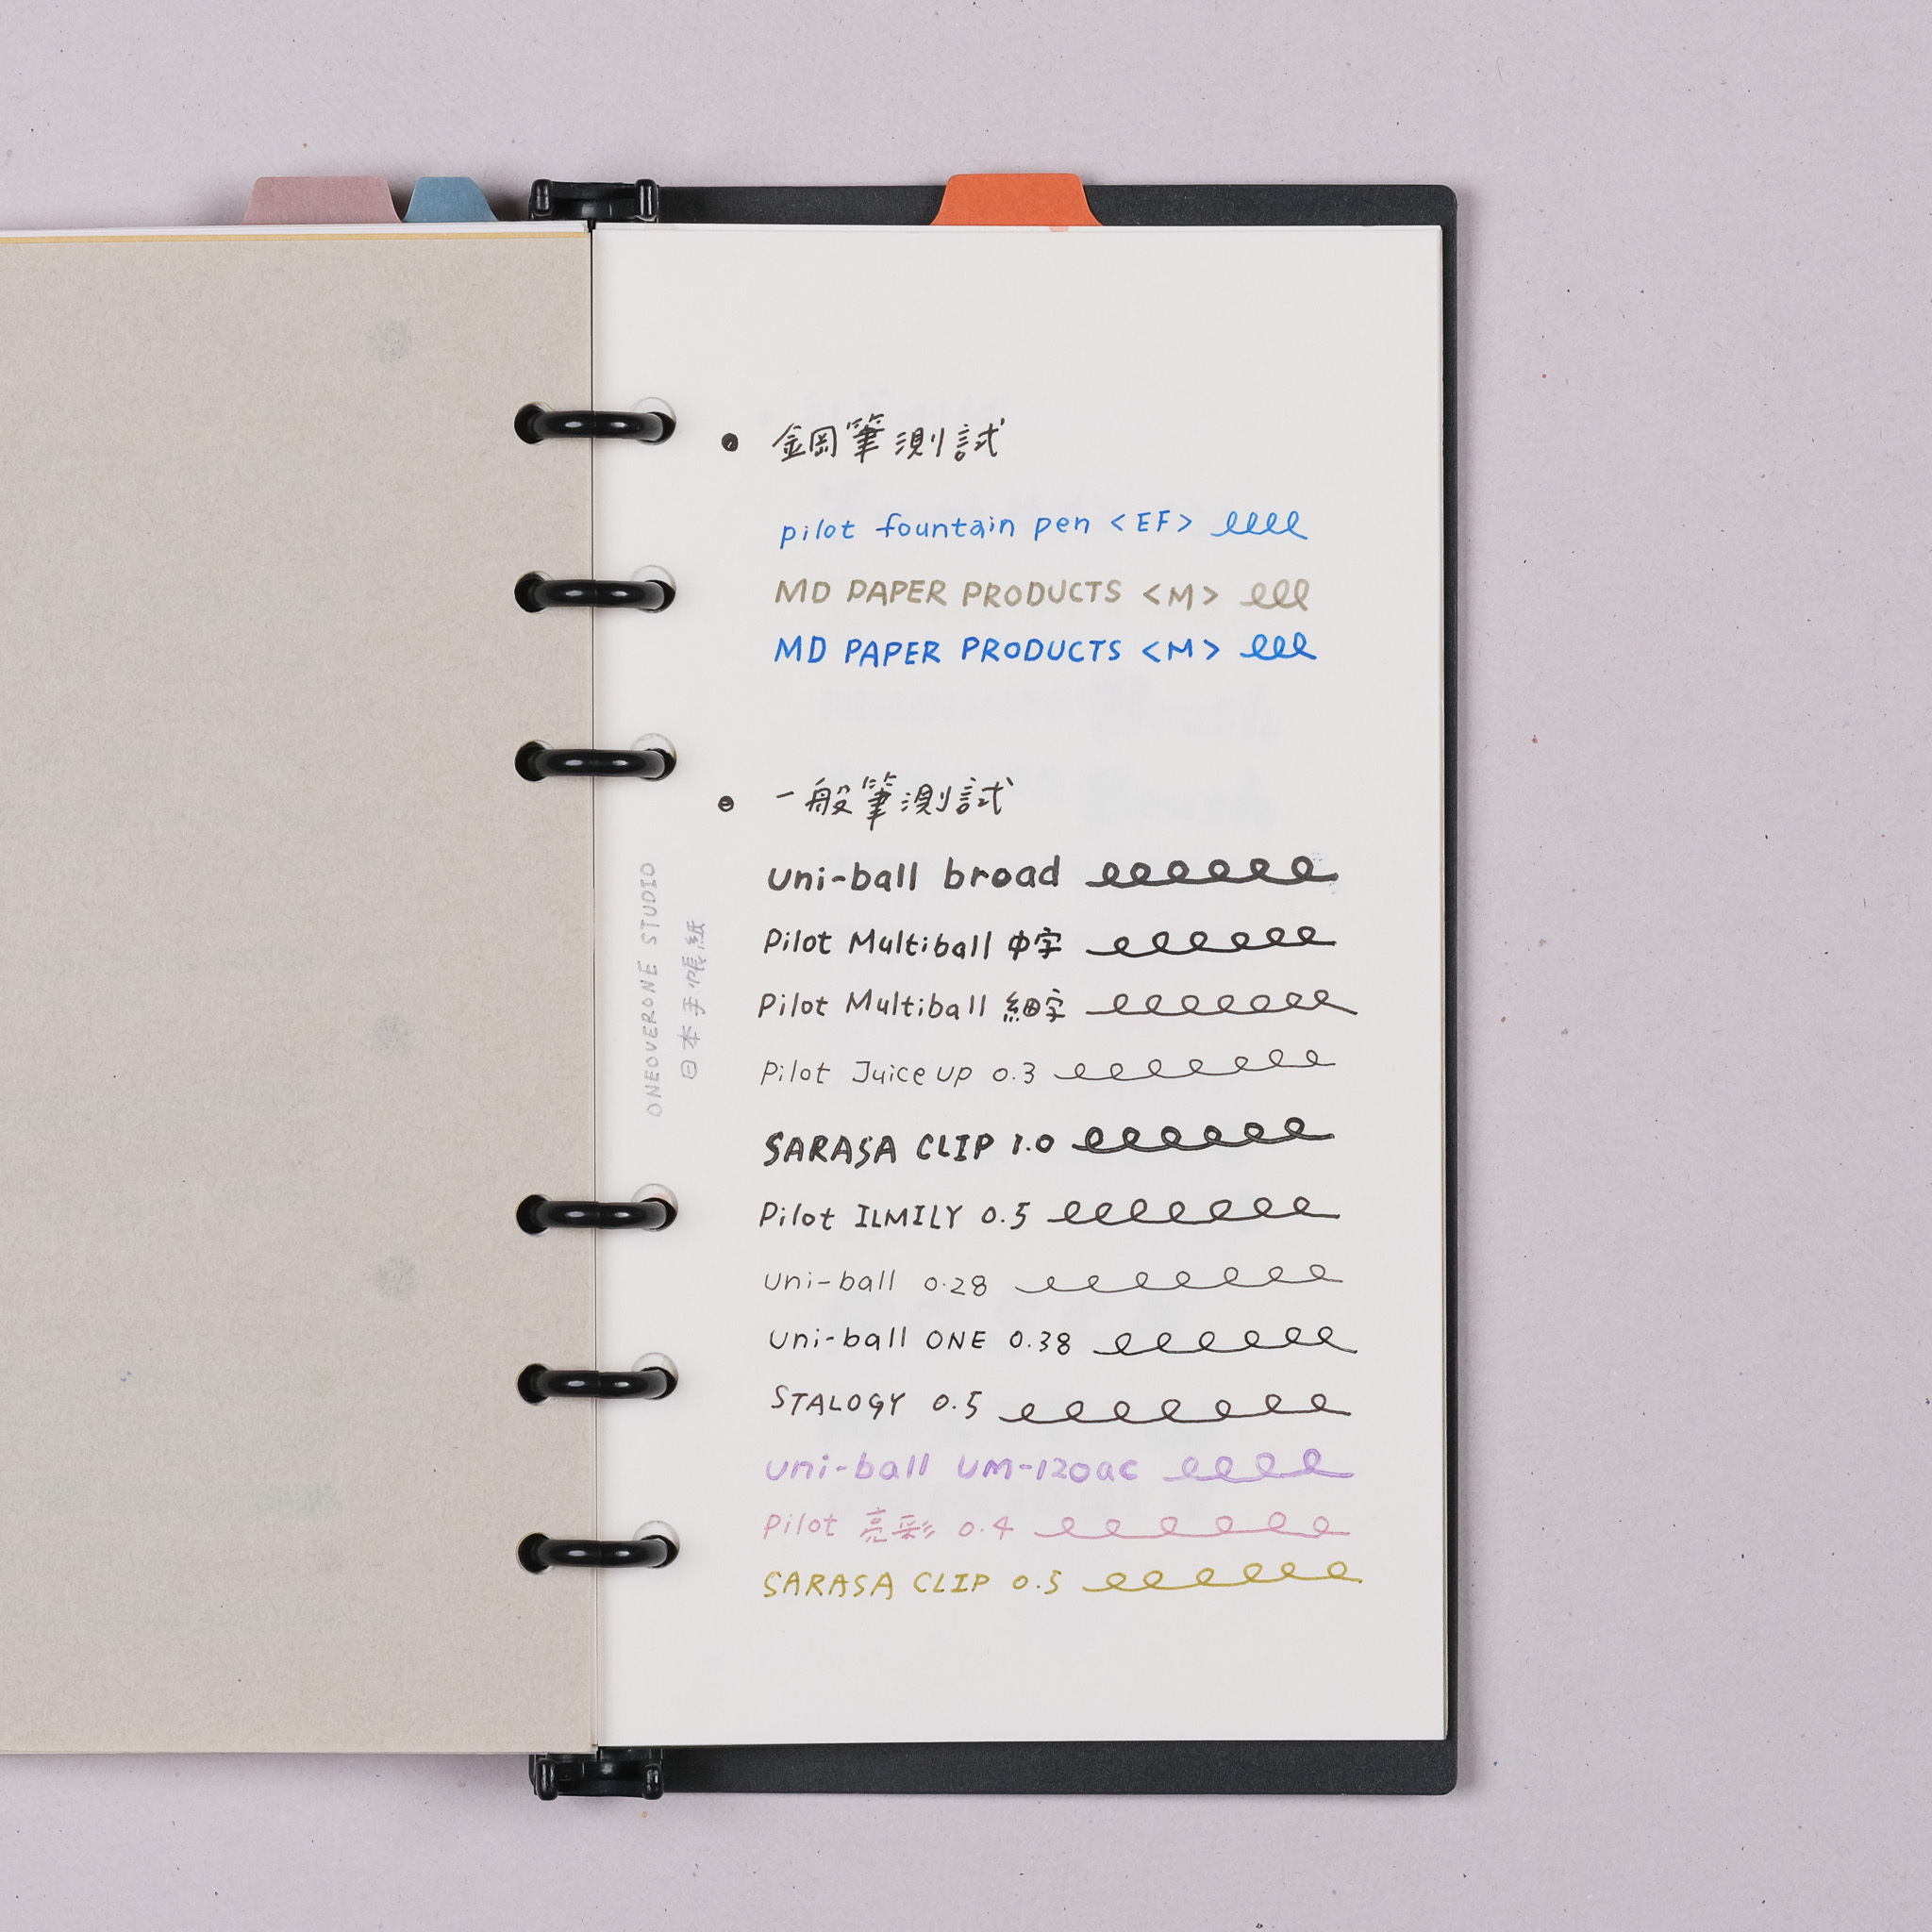 鋼筆測試
pilot fountain pen <EF>
MD PAPER PRODUCTS <M>
MD PAPER PRODUCTS <M>
一般筆測試
uni-ball broad
Pilot Multiball 中字
Pilot Multiball 細字
Pilot Juice up 0.3
SARASA CLIP 1.0
Pilot ILMILY 0.5
uni-ball 0.28
uni-ball ONE 0.38
STALOGY 0.5
uni-ball UM-120AC
Pilot 亮彩 0.4
SARASA CLIP 0.5
ONEOVERONE STUDIO
日本手帳紙